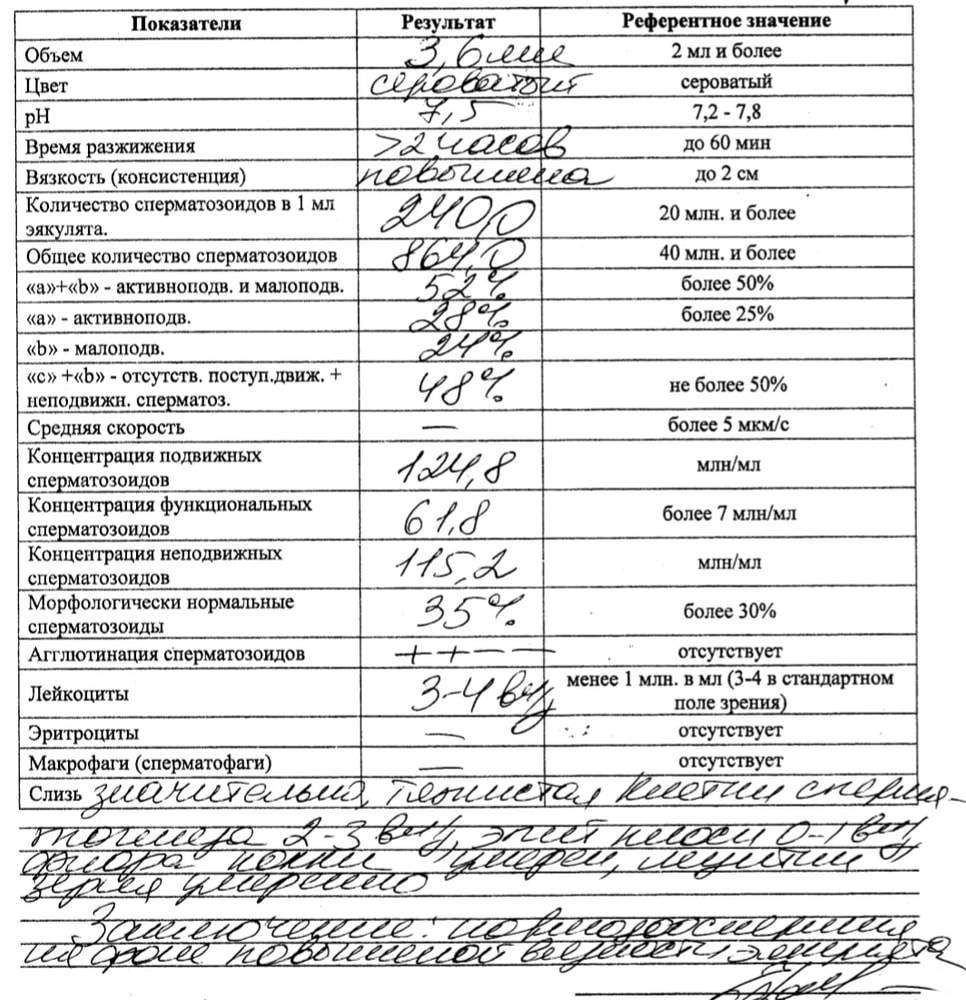 Показатели Результат Референтное значение
Объем 3,6 мл 2 мл и более
Цвет сероватый сероватый
pH 7,5 7,2 - 7,8
Время разжижения >2 часов до 60 мин
Вязкость (консистенция) повышена до 2 см
Количество сперматозоидов в 1 мл
эякулята. 240,0 20 млн. и более
Общее количество сперматозоидов 864,0 40 млн. и более
«a»+«b» - активноподв. и малоподв. 52% более 50%
«a» - активноподв. 28% более 25%
«b» - малоподв. 24%
«c» +«b» - отсутств. поступ.движ. +
неподвижн. сперматоз. 48% не более 50%
Средняя скорость — более 5 мкм/с
Концентрация подвижных
сперматозоидов 124,8 млн/мл
Концентрация функциональных
сперматозоидов 61,8 более 7 млн/мл
Концентрация неподвижных
сперматозоидов 115,2 млн/мл
Морфологически нормальные
сперматозоиды 35% более 30%
Агглютинация сперматозоидов ++—— отсутствует
Лейкоциты 3-4 в п/з менее 1 млн. в мл (3-4 в стандартном
поле зрения)
Эритроциты — отсутствует
Макрофаги (сперматофаги) — отсутствует
Слизь значительно, тяжистая Клетки сперма-
тогенеза 2-3 в п/з, эпит плоский 0-1 в п/з,
флора кокки умерен, лецитин
зерна умеренно
Заключение: нормозооспермия
на фоне повышеной вязкости эякулята